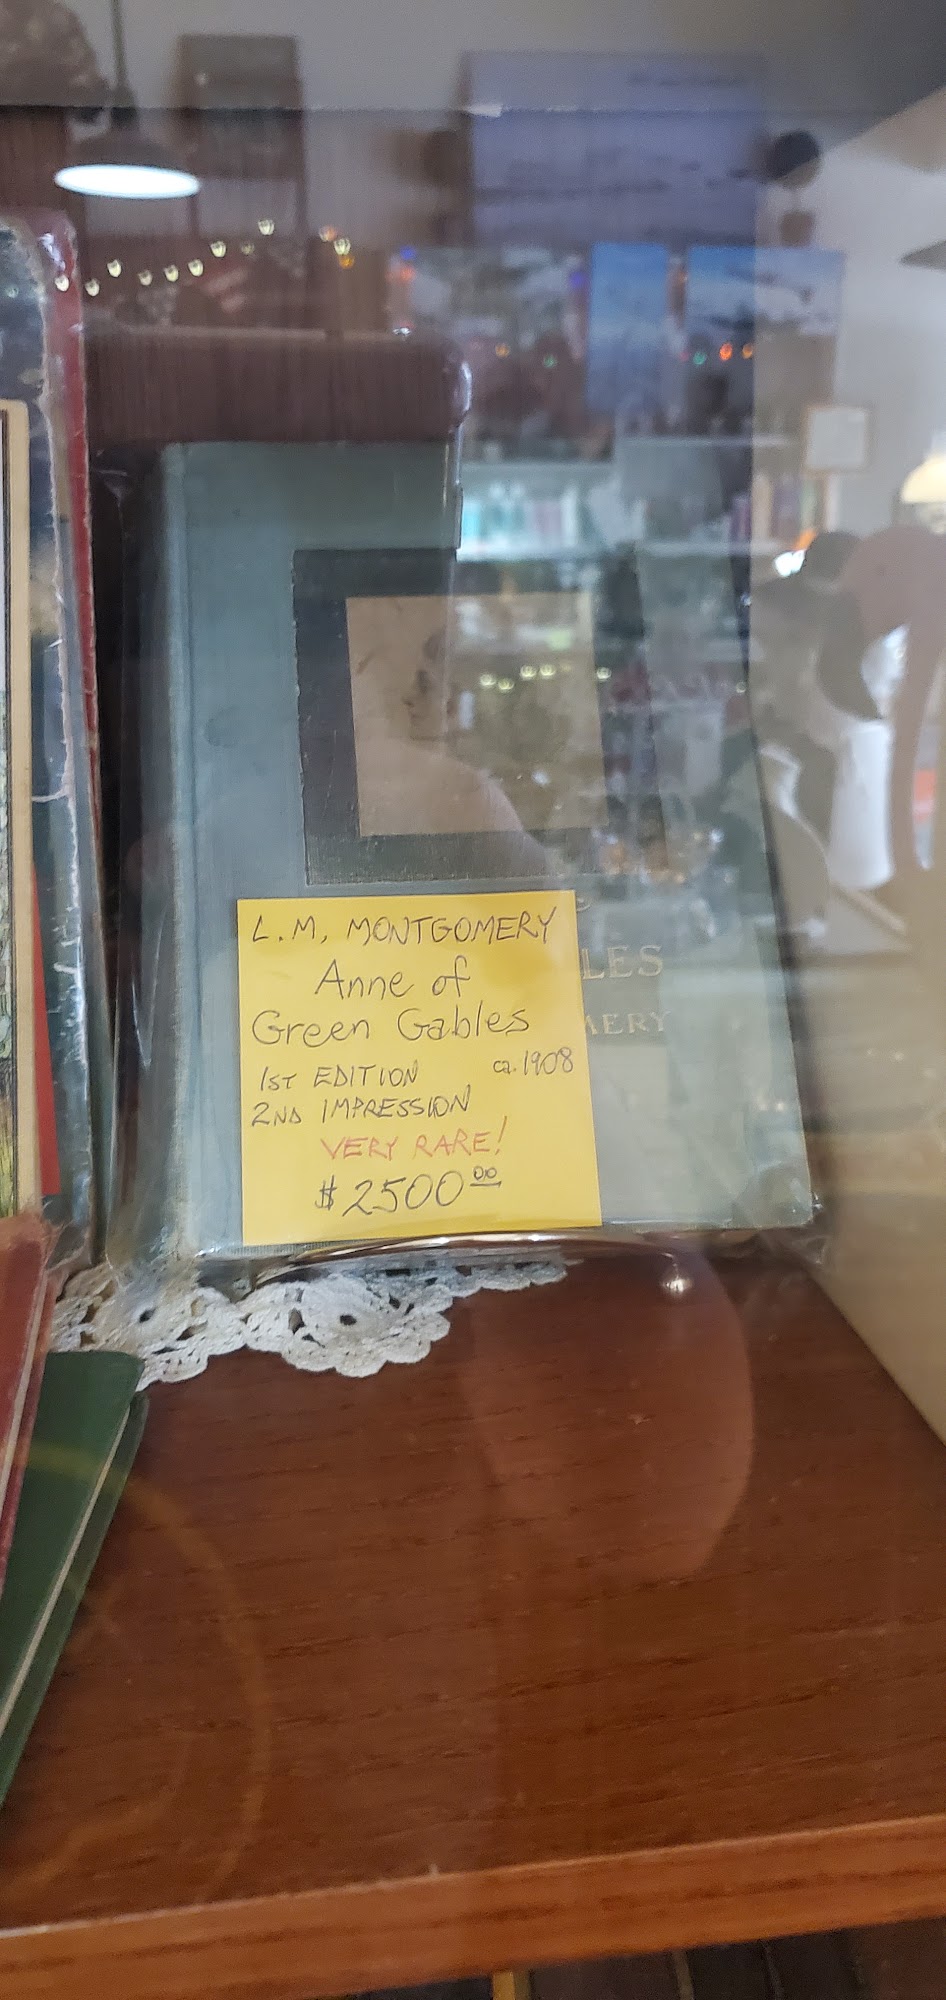 L.M. MONTGOMERY
Anne of
Green Gables
1ST EDITION ca. 1908
2ND IMPRESSION
VERY RARE!
$2500.00
LES
MERY